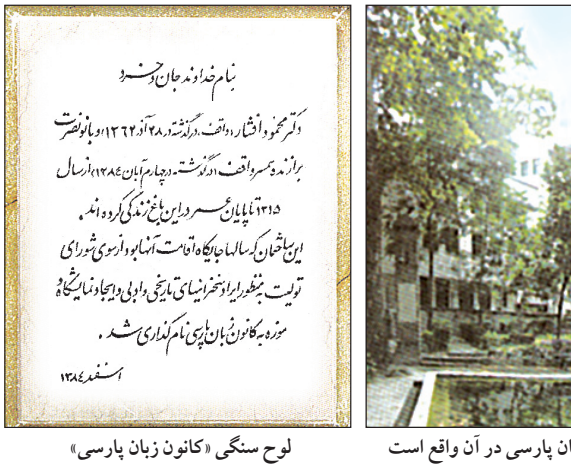 بنام خداوند جان و خرد
دکتر محمود افشار «واقف، درگذشته در ۲۸ آذر ۱۳۶۲» و بانو نصرت
برازنده همسر واقف «درگذشته در چهارم آبان ۱۳۸۴» از سال
۱۳۱۵ تا پایان عمر در این باغ زندگی کرده‌اند.
این ساختمان که سالها جایگاه اقامت آنها بود از سوی شورای
تولیت به منظور ایراد سخنرانیهای تاریخی و ادبی و ایجاد نمایشگاه و
موزه به کانون زبان پارسی نام گذاری شد.
اسفند ۱۳۸۴
لوح سنگی «کانون زبان پارسی»
ان پارسی در آن واقع است